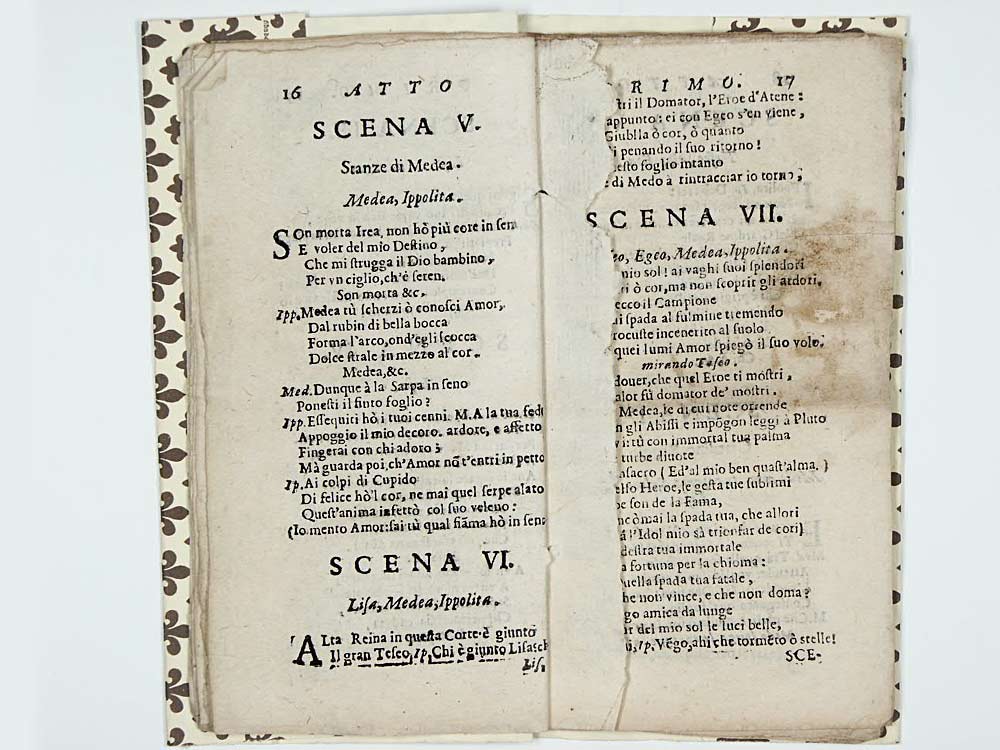 16 ATTO
SCENA V.
Stanze di Medea.
Medea, Ippolita.
SOn morta Irea, non hò più core in sen
E voler del mio Destino,
Che mi strugga il Dio bambino,
Per vn ciglio, ch'è seren.
Son morta &c.
Ipp. Medea tù scherzi ò conosci Amor,
Dal rubin di bella bocca
Forma l'arco, ond'egli scocca
Dolce strale in mezzo al cor.
Medea, &c.
Med. Dunque à la Sarpa in seno
Ponesti il finto foglio?
Ipp. Essequiti hò i tuoi cenni. M. A la tua fed
Appoggio il mio decoro. ardore, e affetto
Fingerai con chi adoro;
Mà guarda poi, ch'Amor nõ t'entri in petto
Ip. Ai colpi di Cupido
Di felice hò'l cor, ne mai quel serpe alato
Quest'anima infettò col suo veleno:
(Io mento Amor: sai tù qual fiãma hò in sen
SCENA VI.
Lisa, Medea, Ippolita.
ALta Reina in questa Corte è giunto
Il gran Teseo, Ip. Chi è giunto Lisa? ch
Lis.
RIMO. 17
stri il Domator, l'Eroe d'Atene:
appunto: ei con Egeo s'en viene,
Giubila ò cor, ò quanto
i penando il suo ritorno!
esto foglio intanto
di Medo à rintracciar io torno;
SCENA VII.
eo, Egeo, Medea, Ippolita.
mio sol! ai vaghi suoi splendori
ri ò cor, ma non scoprir gli ardori.
ecco il Campione
i spada al fulmine tremendo
rocuste incenerito al suolo
quei lumi Amor spiegò il suo volo.
mirando Teseo.
douer, che quel Eroe ti mostri,
alor fù domator de' mostri.
Medea, le di cui note orrende
n gli Abissi e impõgon leggi à Pluto
virtù con immortal tua palma
turbe diuote
nsacro (Ed'al mio ben quast'alma.)
elso Heroe, le gesta tue sublimi
be son de la Fama,
ncòmai la spada tua, che allori
à l'Idol mio sà trionfar de cori)
destra tua immortale
a fortuna per la chioma:
uella spada tua fatale,
he non vince, e che non doma?
go amica da lunge
r del mio sol le luci belle,
i, Ip. Vêgo, ahi che tormêto ò stelle!
SCE-